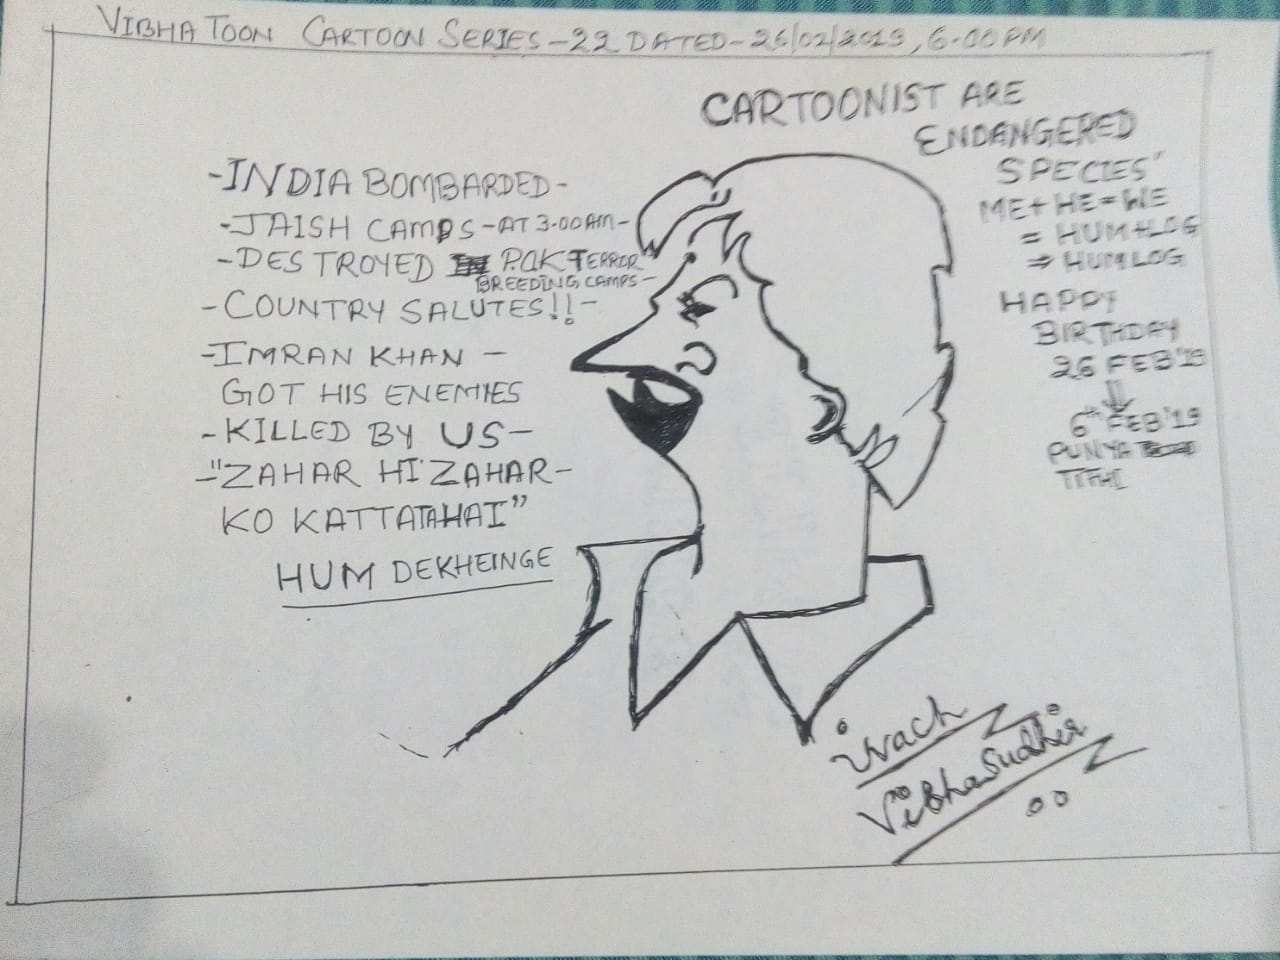 VIBHA TOON CARTOON SERIES-22 DATED-26/02/2019, 6.00PM
CARTOONIST ARE
ENDANGERED
SPECIES'
ME+HE=WE
= HUM+LOG
⇒ HUMLOG
HAPPY
BIRTHDAY
26 FEB'19
⇓
6th FEB'19
PUNYA
TITHI
-INDIA BOMBARDED-
-JAISH CAMPS-AT 3.00AM-
-DESTROYED IN P.OK TERROR
BREEDING CAMPS-
-COUNTRY SALUTES!!-
-IMRAN KHAN-
GOT HIS ENEMIES
-KILLED BY US-
-"ZAHAR HI ZAHAR-
KO KATTATAHAI"
HUM DEKHEINGE
VibhaSudhir